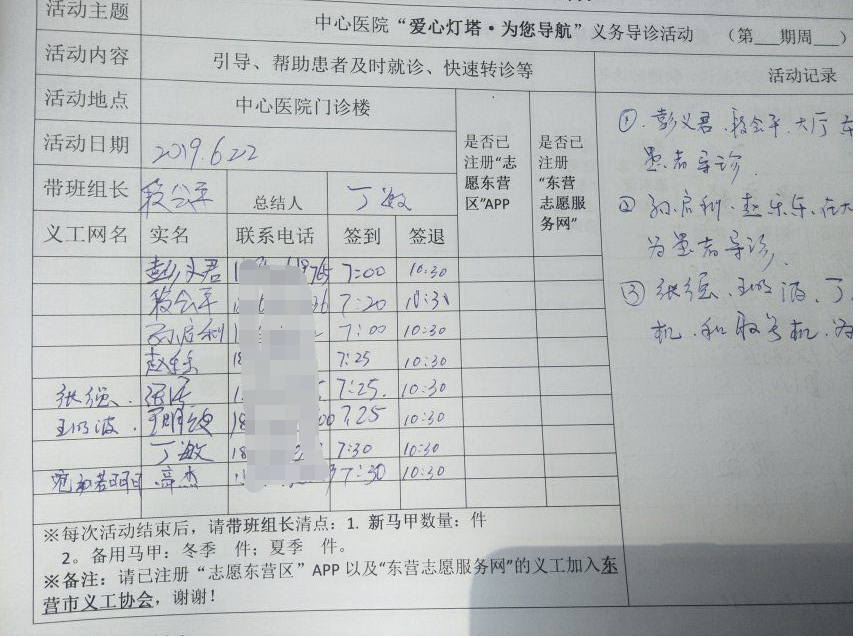 活动主题 中心医院“爱心灯塔·为您导航”义务导诊活动 （第___期周___）
活动内容 引导、帮助患者及时就诊、快速转诊等 活动记录
活动地点 中心医院门诊楼
活动日期 2019.6.22
是否已注册“志愿东营区”APP
是否已注册“东营志愿服务网”
带班组长 段会平 总结人 丁敏
义工网名 实名 联系电话 签到 签退
彭义君 1 8765 7:00 10:30
段会平 7:20 10:30
孙启利 1 7:00 10:30
赵乐乐 18 7:25 10:30
张强 1 7:25. 10:30
王明波 18 00 7:25 10:30
丁敏 18 7:30 10:30
高杰 7:30 10:30
①.彭义君.段会平.大厅
患者导诊.
②孙启利.赵乐乐.在大
为患者导诊.
③张强.王明波.丁
机.和取号机.为
※每次活动结束后，请带班组长清点：1. 新马甲数量：件
2。备用马甲：冬季 件；夏季 件。
※备注：请已注册“志愿东营区”APP以及“东营志愿服务网”的义工加入东
营市义工协会，谢谢！